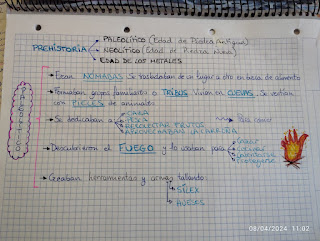 PREHISTORIA
PALEOLÍTICO (Edad de Piedra Antigua)
NEOLÍTICO (Edad de Piedra Nueva)
EDAD DE LOS METALES
→ Eran NÓMADAS. Se trasladaban de un lugar a otro en busca de alimento
→ Formaban grupos familiares o TRIBUS. Vivían en CUEVAS. Se vestían
con PIELES de animales.
→ Se dedicaban a
CAZA
PESCA
RECOLECTAR FRUTOS
APROVECHABAN LA CARROÑA
Para comer
→ Descubrieron el FUEGO y lo usaban para
Cazar
Cocinar
Calentarse
Protegerse
→ Creaban herramientas y armas tallando:
SÍLEX
HUESOS
08/04/2024 11:02